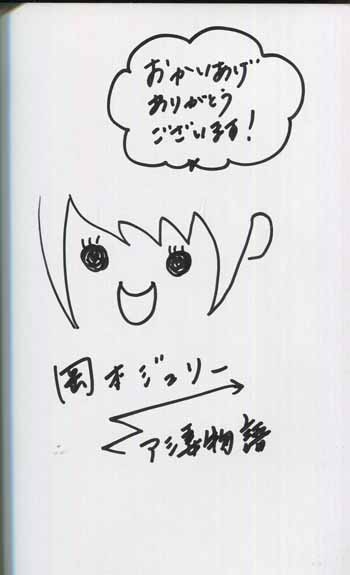 おかいあげ
ありがとう
ございます!
岡本ジュリー
アジ妻物語